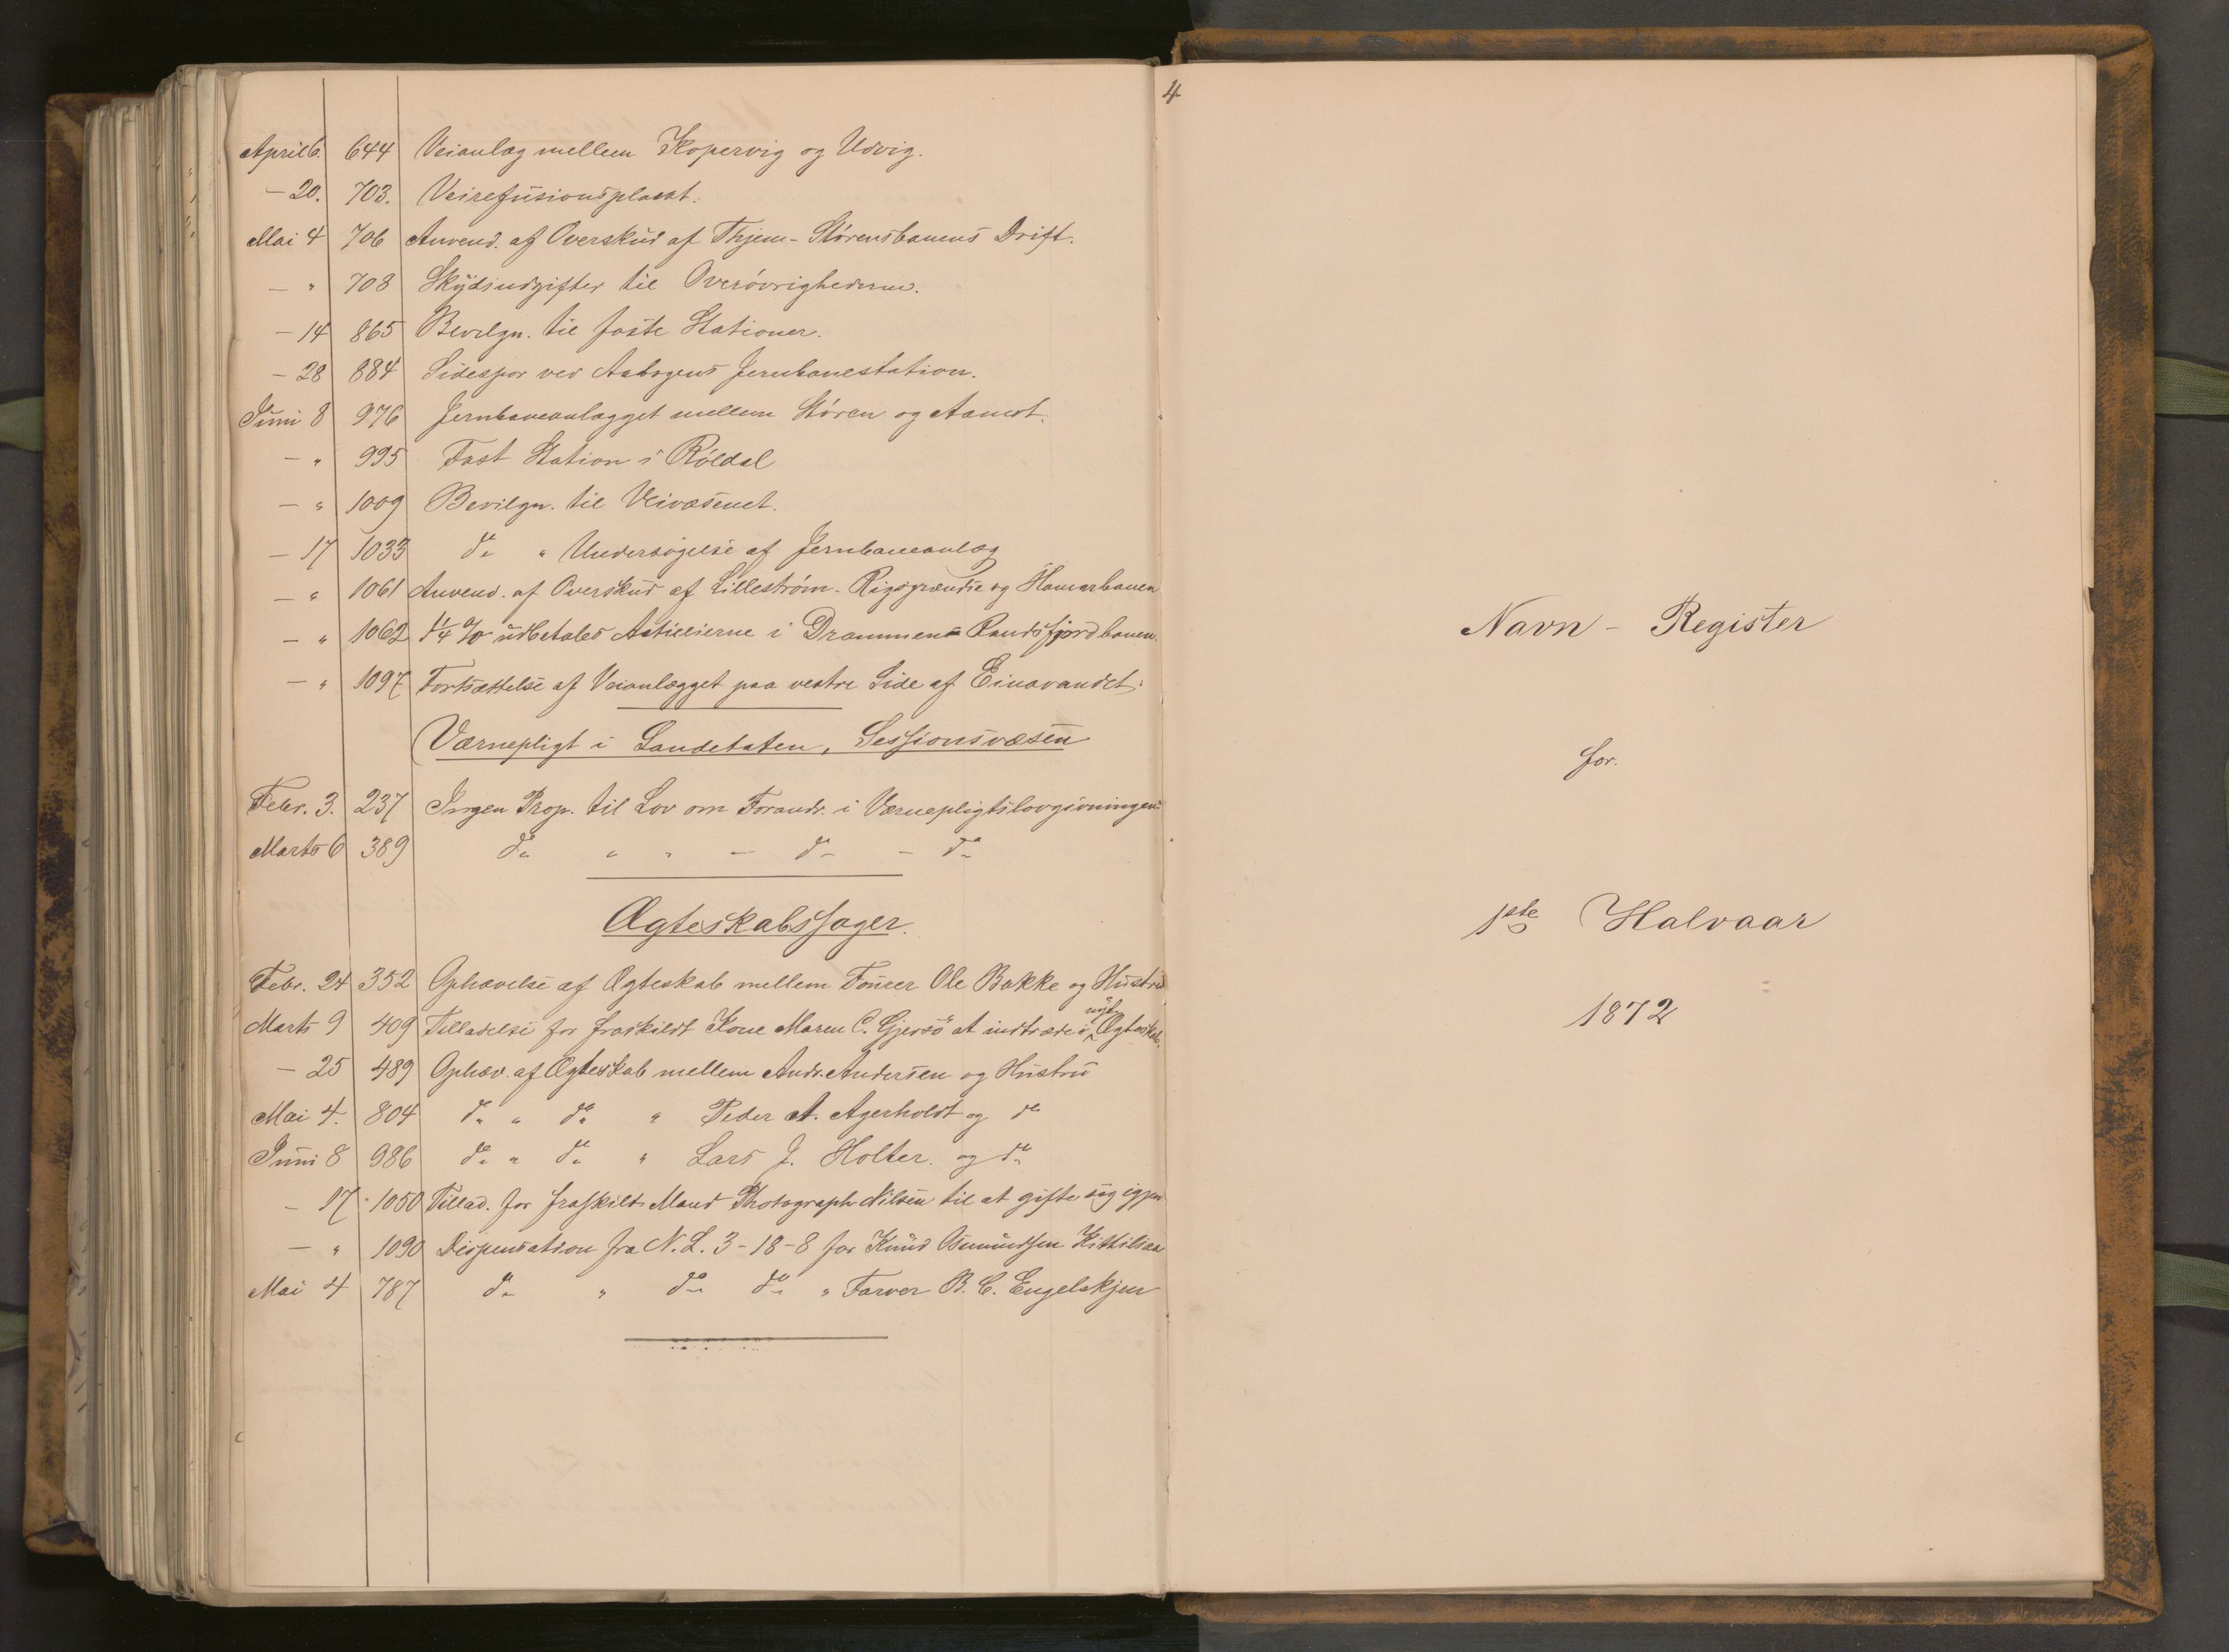 April 6. 644 Veianlæg mellem Kopervig og Udvig.
— 20. 703. Veirefusionsplacat.
Mai 4 706 Anvend. af Overskud af Thjem-Størensbanens Drift.
— " 708 Skydsudgifter til Overøvrighederne.
— 14 865 Bevilgn. til faste Stationer.
— 28 884 Sidespor ved Aabogens Jernbanestation.
Juni 8 976 Jernbaneanlægget mellem Støren og Aamot.
— " 995 Fast Station i Røldal
— " 1009 Bevilgn. til Veivæsenet.
— 17 1033 do " Undersøgelse af Jernbaneanlæg
— " 1061 Anvend. af Overskud af Lillestrøm-Rigsgrændse og Hamarbanen
— " 1062 1¼ % udbetales Actieeierne i Drammens-Randsfjordbanen.
— " 1097 Fortsættelse af Veianlægget paa vestre Side af Einavandet.
Værnepligt i Landetaten, Sessionsvæsen
Febr. 3. 237 Ingen Prop. til Lov om Forandr. i Værnepligtslovgivningen
Marts 6 389 do " " — do — do
Ægteskabssager.
Febr. 24 352 Ophævelse af Ægteskab mellem Fourer Ole Bakke og Hustru
Marts 9 409 Tilladelse for fraskildt Kone Maren C. Gjersø at indtræde i nyt Ægteskab.
— 25 489 Ophæv. af Ægteskab mellem Andr. Andersen og Hustru
Mai 4. 804 do " do " Peder A. Agerholdt og do
Juni 8 986 do " do " Lars J. Holter. og do
— 17 1050 Tillad. for fraskilt Mand Photograph Nilsen til at gifte sig igjen
— " 1090 Dispensation fra N. L. 3-18-8 for Knud Osmundsen Kithilsaa
Mai 4 787 do " do do " Farver B. C. Engelskjen
4
Navn - Register
for.
1ste Halvaar
1872